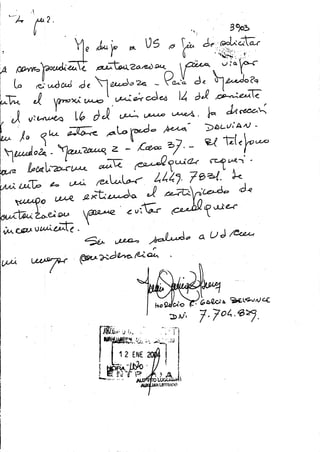 3903
Me dirijo a US a fin de solicitar
la correspondiente autorización para viajar
a la ciudad de Mendoza - Pcia de Mendoza
entre el próximo miércoles 14 del corriente
y el viernes 16 del mismo mes. La dirección
en la que estaré alojado será DALVIAN -
Mendoza. Manzana 2 - Casa 37. - El teléfono
para localizarme ante cualquier requeri-
miento es mi celular 4449 7831. Se
me extienda el certificado de
autorización para evitar cualquier
inconveniente.
Sin mas saludo a Ud con
mi mayor consideración.
Horacio E. GARCIA BELSUNCE
DNI. 7.704.829.
12 ENE 2004